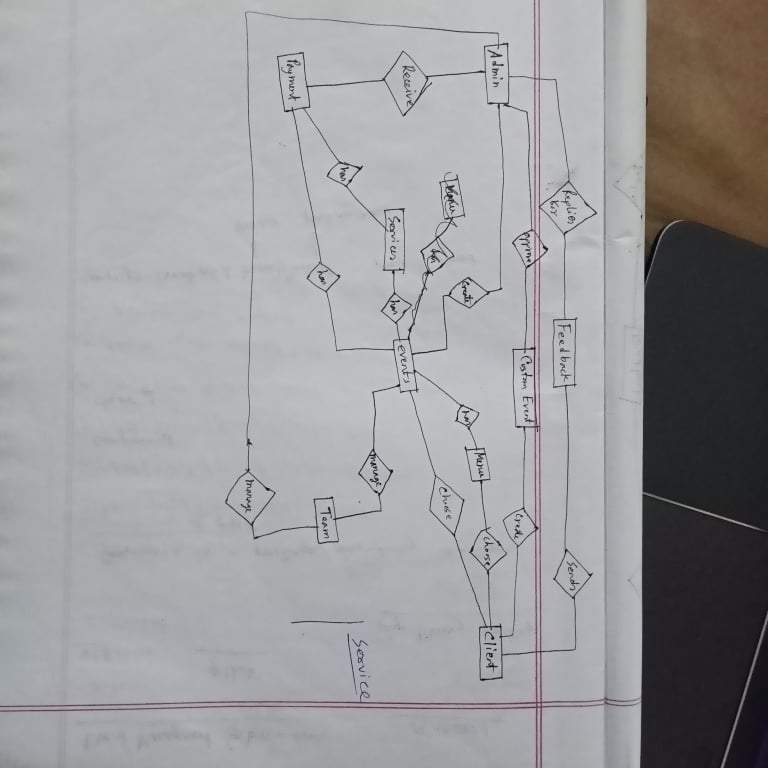 Replies
for
Feedback
Sends
Approve
Custom Event
Create
Admin
Client
Create
has
Menu
choose
Menu
has
choose
Receive
Services
has
events
manage
Service
has
has
Team
Payment
manage